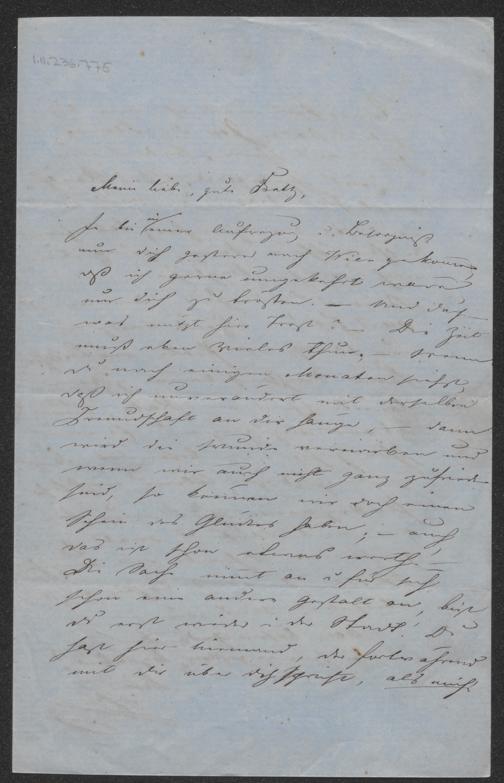 I.N.236.775
Mein liebe, gute Fratz,
in einer Aufregung u. Besorgniß
um dich gestern nach Wien gekommen
daß ich gerne umgekehrt wäre
um dich zu trösten. — Und doch
was nützt hier Trost? — Die Zeit
muß eben vieles thun, — wenn
du nach einigen Monaten siehst,
daß ich unverändert mit derselben
Freundschaft an dir hänge, — dann
wird die Wunde vernarben und
wenn wir auch nicht ganz zufrieden
sind, so können wir doch einen
Schein des Glückes haben, — auch
das ist schon etwas werth. —
Die Sache nimt an u für sich
schon eine andere Gestalt an, bist
du erst wieder in der Stadt. Du
hast hier niemand, der fortwährend
mit dir über dich spricht, als mich.